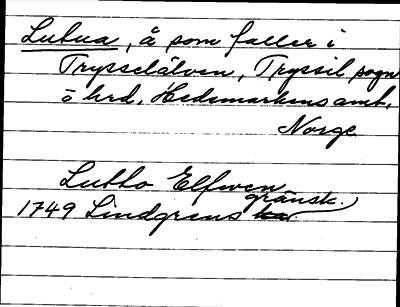 Lutua, å som faller i
Trysselälven, Tryssil sogn
o hrd, Hedemarkens amt,
Norge
Lutto Elfwen
1749 Lindgrens gränsk.